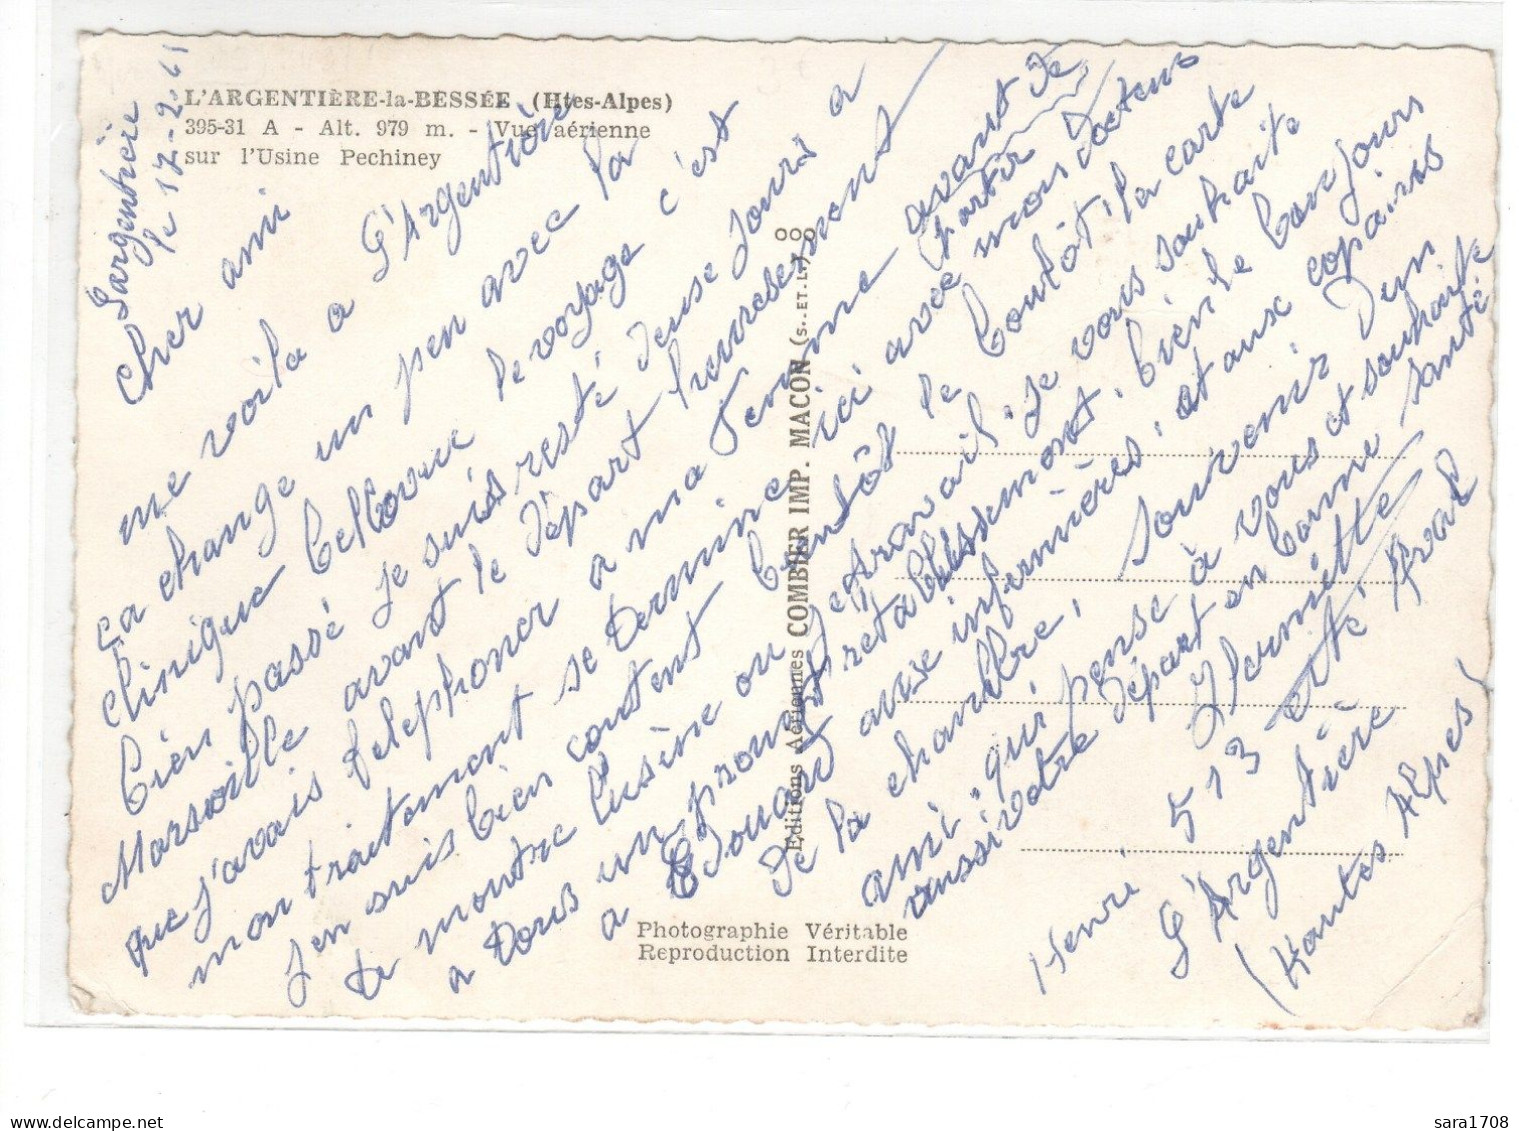 L'ARGENTIÈRE-la-BESSÉE (Htes-Alpes)
395-31 A - Alt. 979 m. - Vue aérienne
sur l'Usine Pechiney
Largentière
le 17-2-61
Cher ami
me voila a l'Argentière
ça change un peu avec la
clinique Bellevue le voyage c'est
bien passé je suis resté deux jours a
Marseille avant le départ heureusement
que j'avais telephoner a ma femme avant de partir
mon traitement se termine ici avec mon docteur
j'en suis bien content bientôt le boulôt la carte
te montre l'usine ou je travail. je vous souhaite
a tous un prompt retablissement, bien le bonjours
a Edouard aux infermières, et aux copains
de la chambre, souvenir d'un
ami qui pense à vous et souhaite
aussi votre départ en bonne santé
Henri
513 cité
L'Argentière
(Hautes Alpes)
Editions Aériennes COMBIER IMP. MACON (S. ET L.)
Photographie Véritable
Reproduction Interdite
sara1708